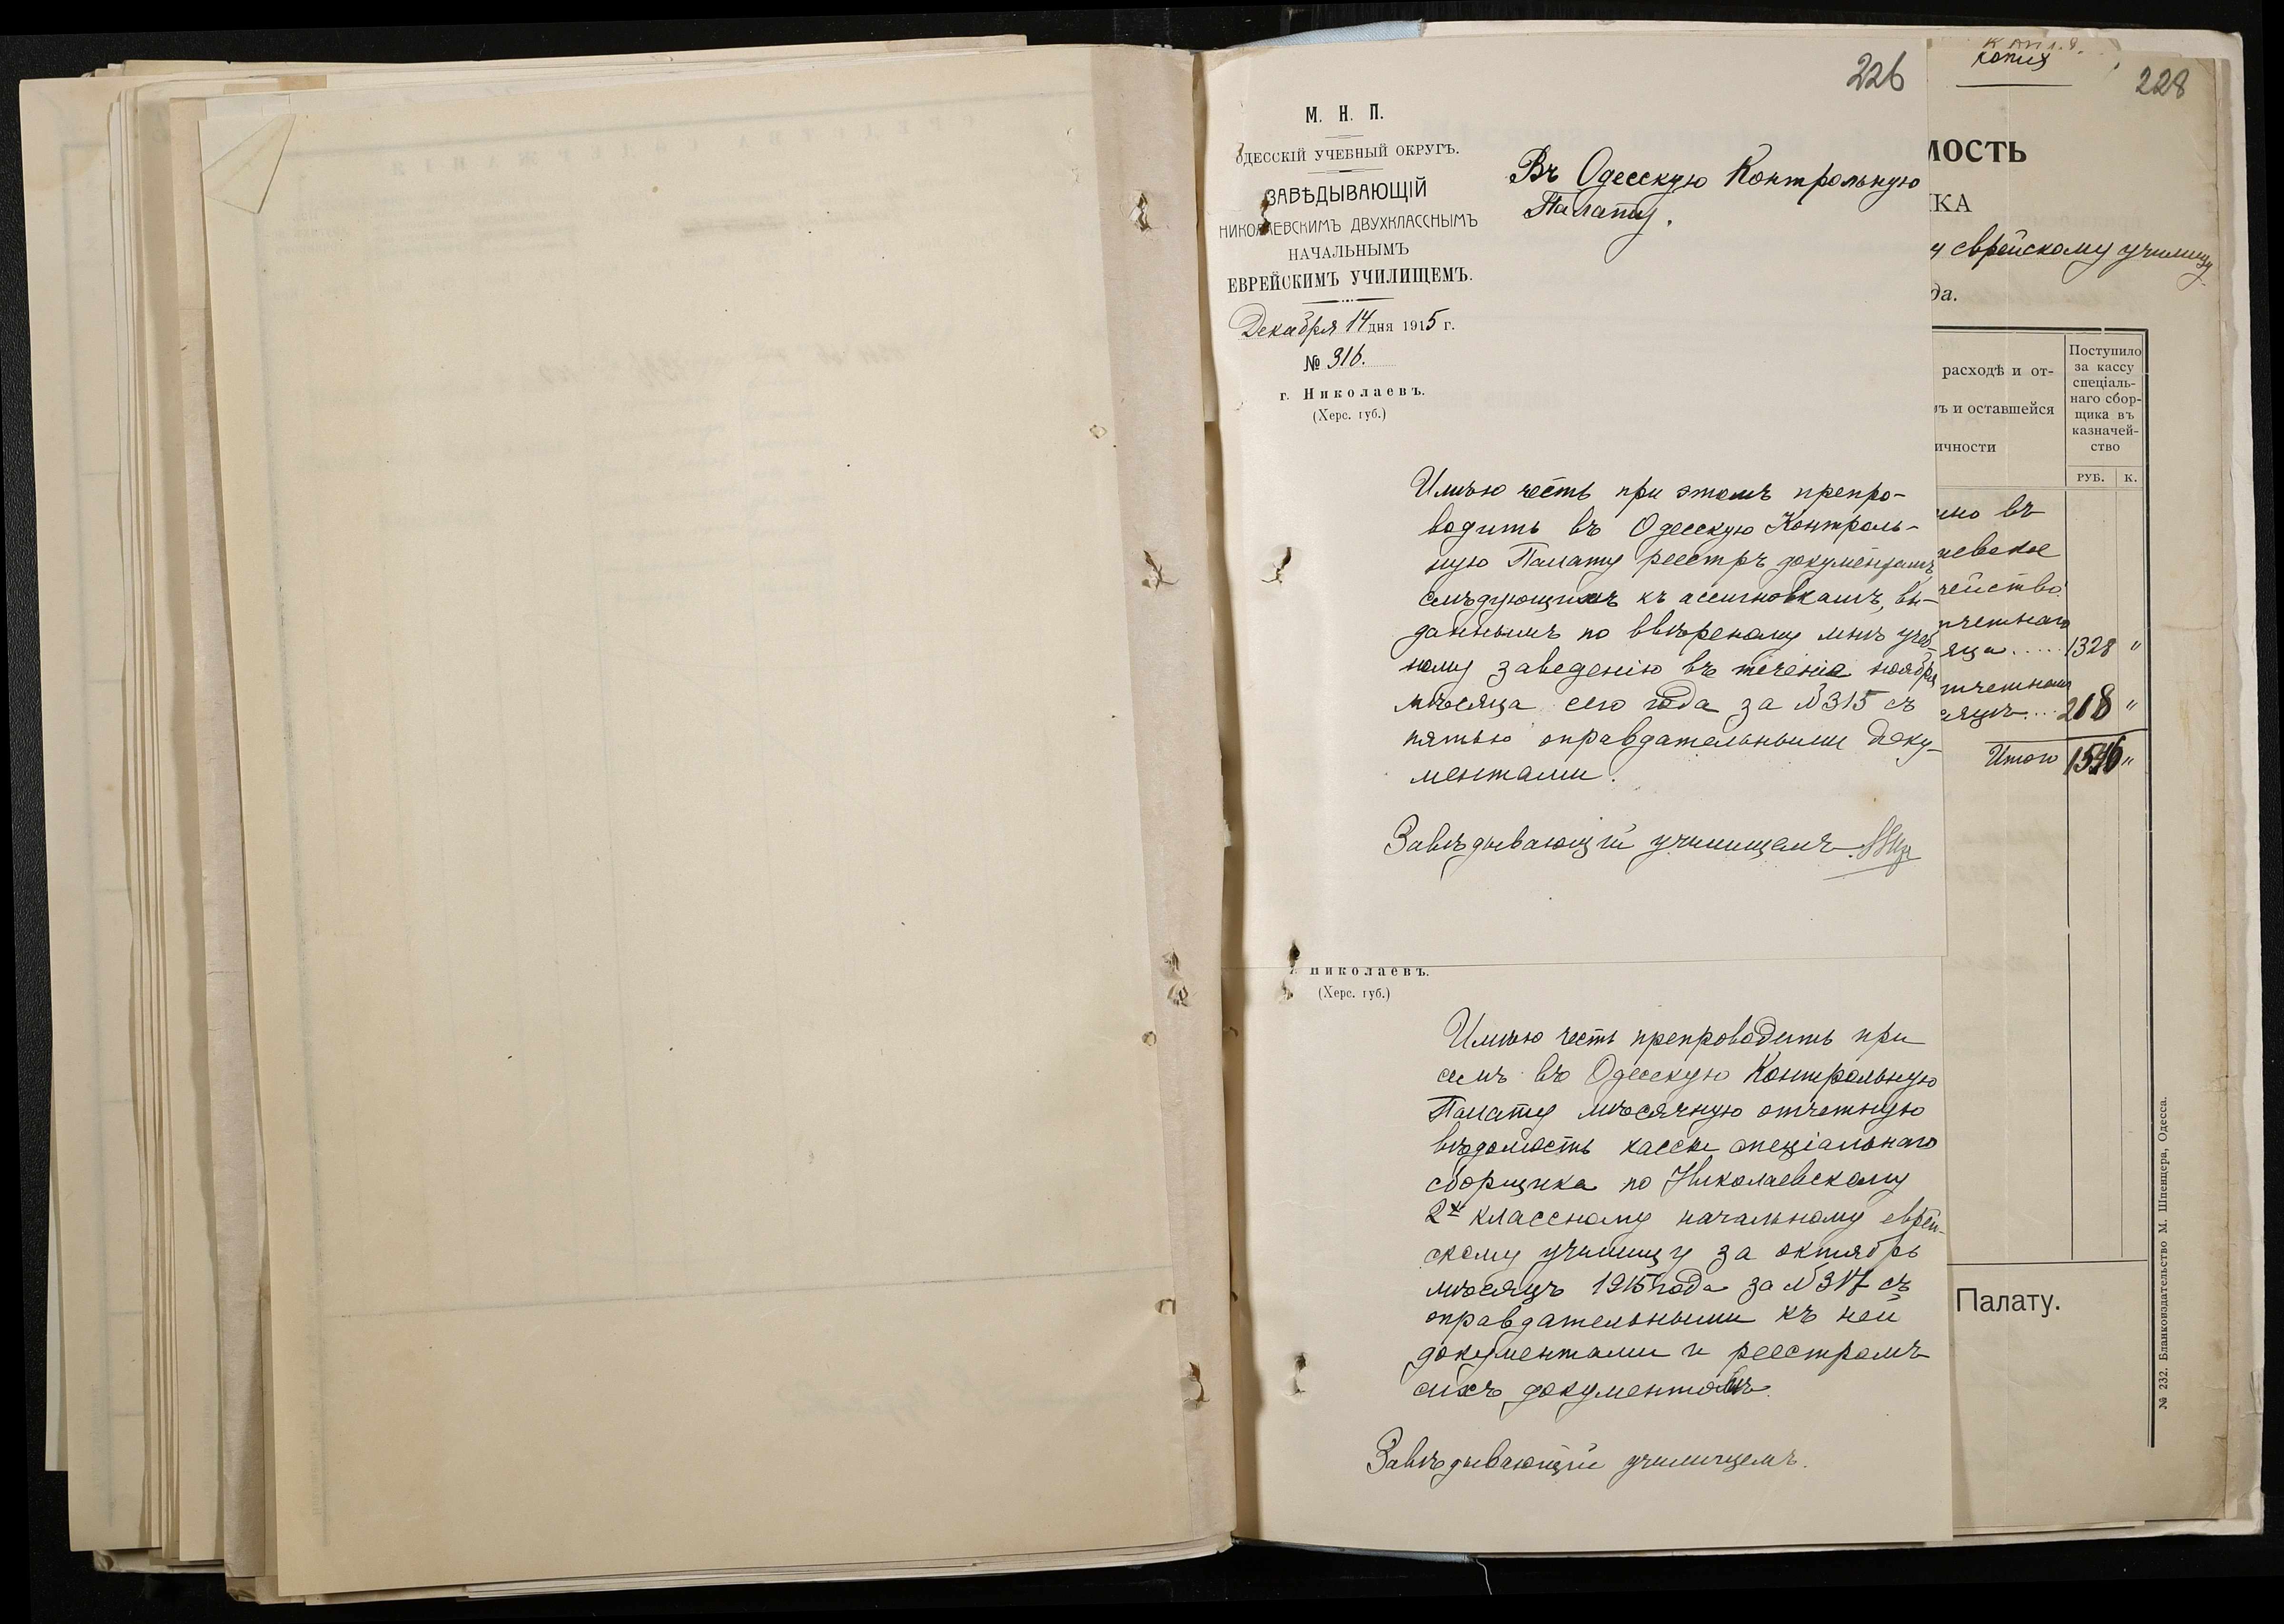 226
М. Н. П.
ОДЕССКІЙ УЧЕБНЫЙ ОКРУГЪ.
ЗАВѢДЫВАЮЩІЙ
НИКОЛАЕВСКИМЪ ДВУХКЛАССНЫМЪ
НАЧАЛЬНЫМЪ
ЕВРЕЙСКИМЪ УЧИЛИЩЕМЪ.
Декабря 14 дня 1915 г.
№ 316.
г. Николаевъ.
(Херс. губ.)
Въ Одесскую Контрольную
Палату.
Имѣю честь при этомъ препро-
водить въ Одесскую Контроль-
ную Палату реестръ документамъ
слѣдующихъ къ ассигновкамъ, вы-
даннымъ по ввѣреному мнѣ учеб-
ному заведенію въ теченіе ноября
мѣсяца сего года за №315 съ
пятью оправдательными доку-
ментами.
Завѣдывающій училищемъ
Николаевъ.
(Херс. губ.)
Имѣю честь препроводить при
семъ въ Одесскую Контрольную
Палату мѣсячную отчетную
вѣдомость кассы спеціальнаго
сборщика по Николаевскому
2х классному начальному еврей-
скому училищу за октябрь
мѣсяцъ 1915 года за №317 съ
оправдательными къ ней
документами и реестромъ
сихъ документовъ.
Завѣдывающій училищемъ.
копия
228
МОСТЬ
КА
у еврейскому училищу
да.
расходѣ и от-
ъ и оставшейся
ичности
Поступило
за кассу
спеціаль-
наго сбор-
щика въ
казначей-
ство
РУБ. К.
ено въ
аевское
чейство
тчетнаго
яца ..... 1328 "
тчетномъ
сяцѣ ... 218 "
Итого 1546 "
Палату.
№ 232. Бланкоиздательство М. Шпенцера, Одесса.